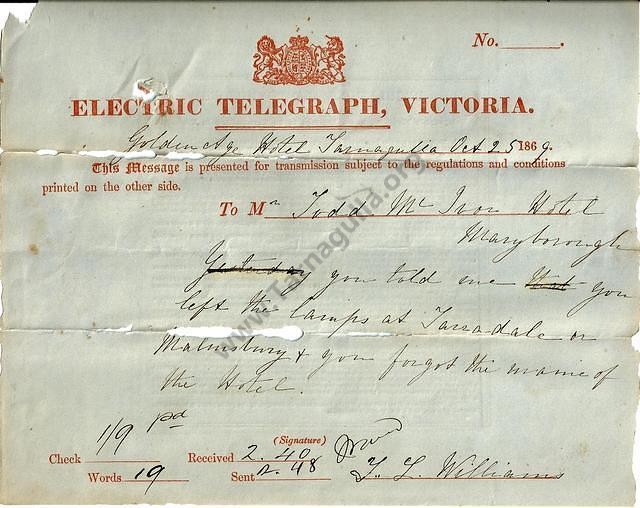 No.
ELECTRIC TELEGRAPH, VICTORIA.
Golden Age Hotel Tarnagulla Oct 25 1869.
This Message is presented for transmission subject to the regulations and conditions
printed on the other side.
To Mr Todd Mc Ivor Hotel
Maryborough
Yesterday you told me that you
left the lamps at Taradale or
Malmsbury & you forgot the name of
the Hotel.
1/9 pd
(Signature)
Check Received 2.40
Words 19 Sent 2.48 T. L. Williams
www.Tarnagulla.org